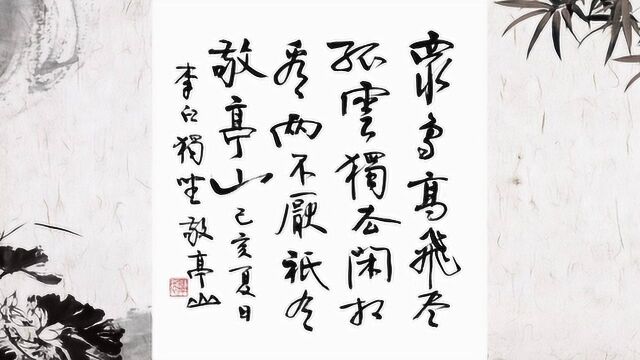 眾鳥高飛尽
孤雲獨去閑相
看两不厭祇有
敬亭山 己亥夏日
李白獨坐敬亭山